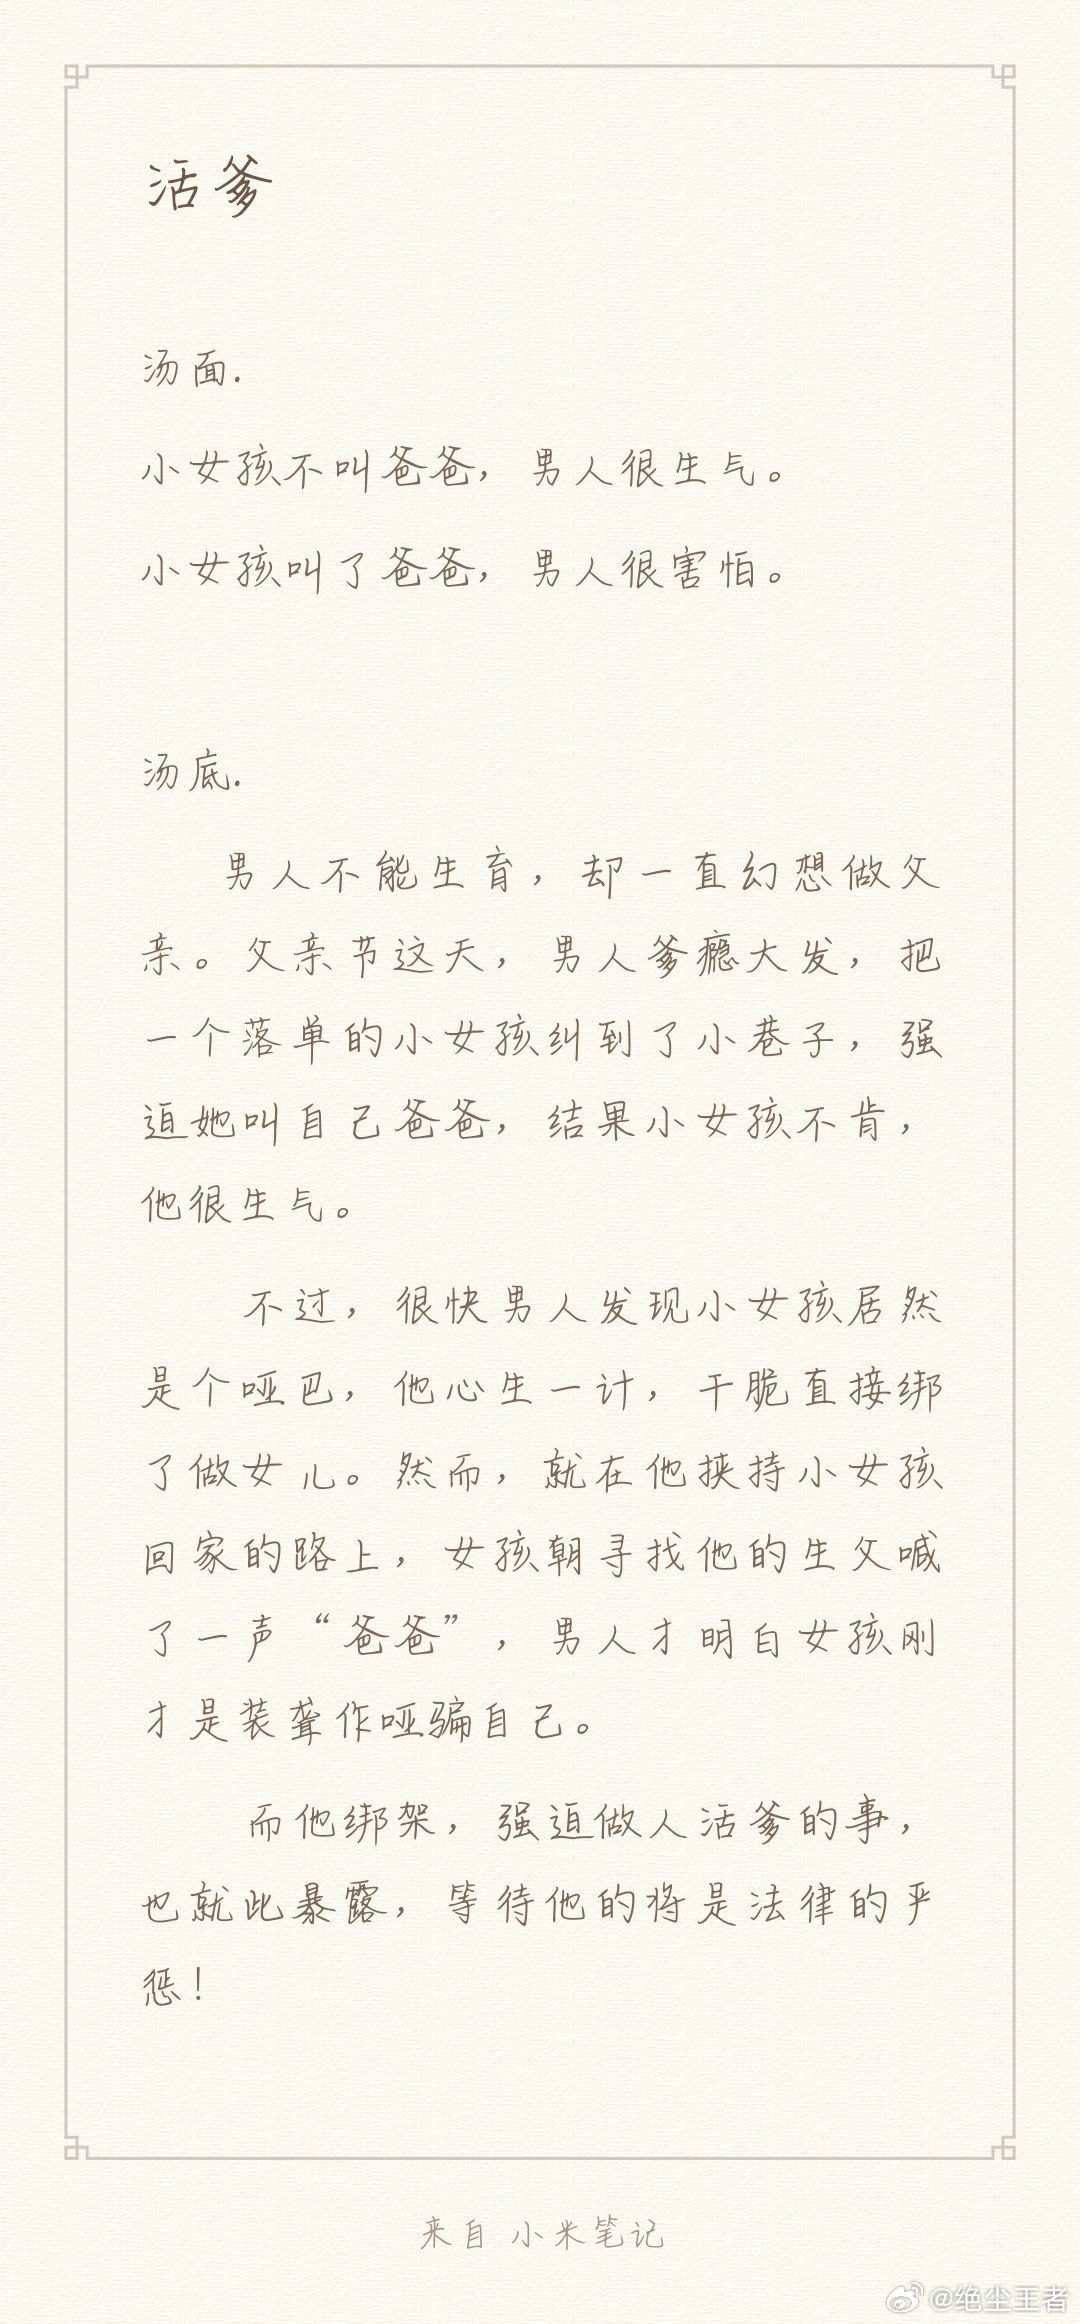 活爹
汤面.
小女孩不叫爸爸，男人很生气。
小女孩叫了爸爸，男人很害怕。
汤底.
男人不能生育，却一直幻想做父
亲。父亲节这天，男人爹瘾大发，把
一个落单的小女孩纠到了小巷子，强
迫她叫自己爸爸，结果小女孩不肯，
他很生气。
不过，很快男人发现小女孩居然
是个哑巴，他心生一计，干脆直接绑
了做女儿。然而，就在他挟持小女孩
回家的路上，女孩朝寻找他的生父喊
了一声“爸爸”，男人才明白女孩刚
才是装聋作哑骗自己。
而他绑架，强迫做人活爹的事，
也就此暴露，等待他的将是法律的严
惩！
来自 小米笔记
@绝尘王者